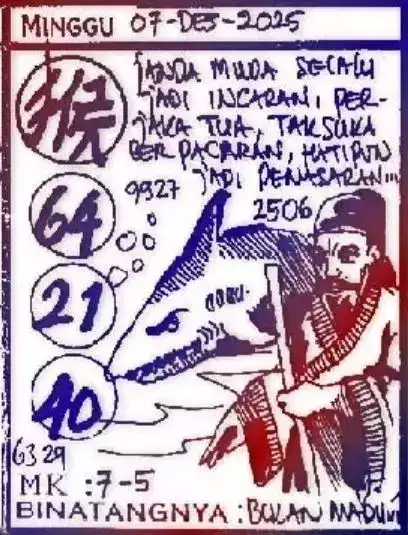 MINGGU 07-DES-2025
猴
JANDA MUDA SELALU
JADI INCARAN, PER-
JAKA TUA, TAK SUKA
BERPACARAN, HATIPUN
JADI PENASARAN...
9927
2506
64
21
40
6329
MK : 7-5
BINATANGNYA : BULAN MADU